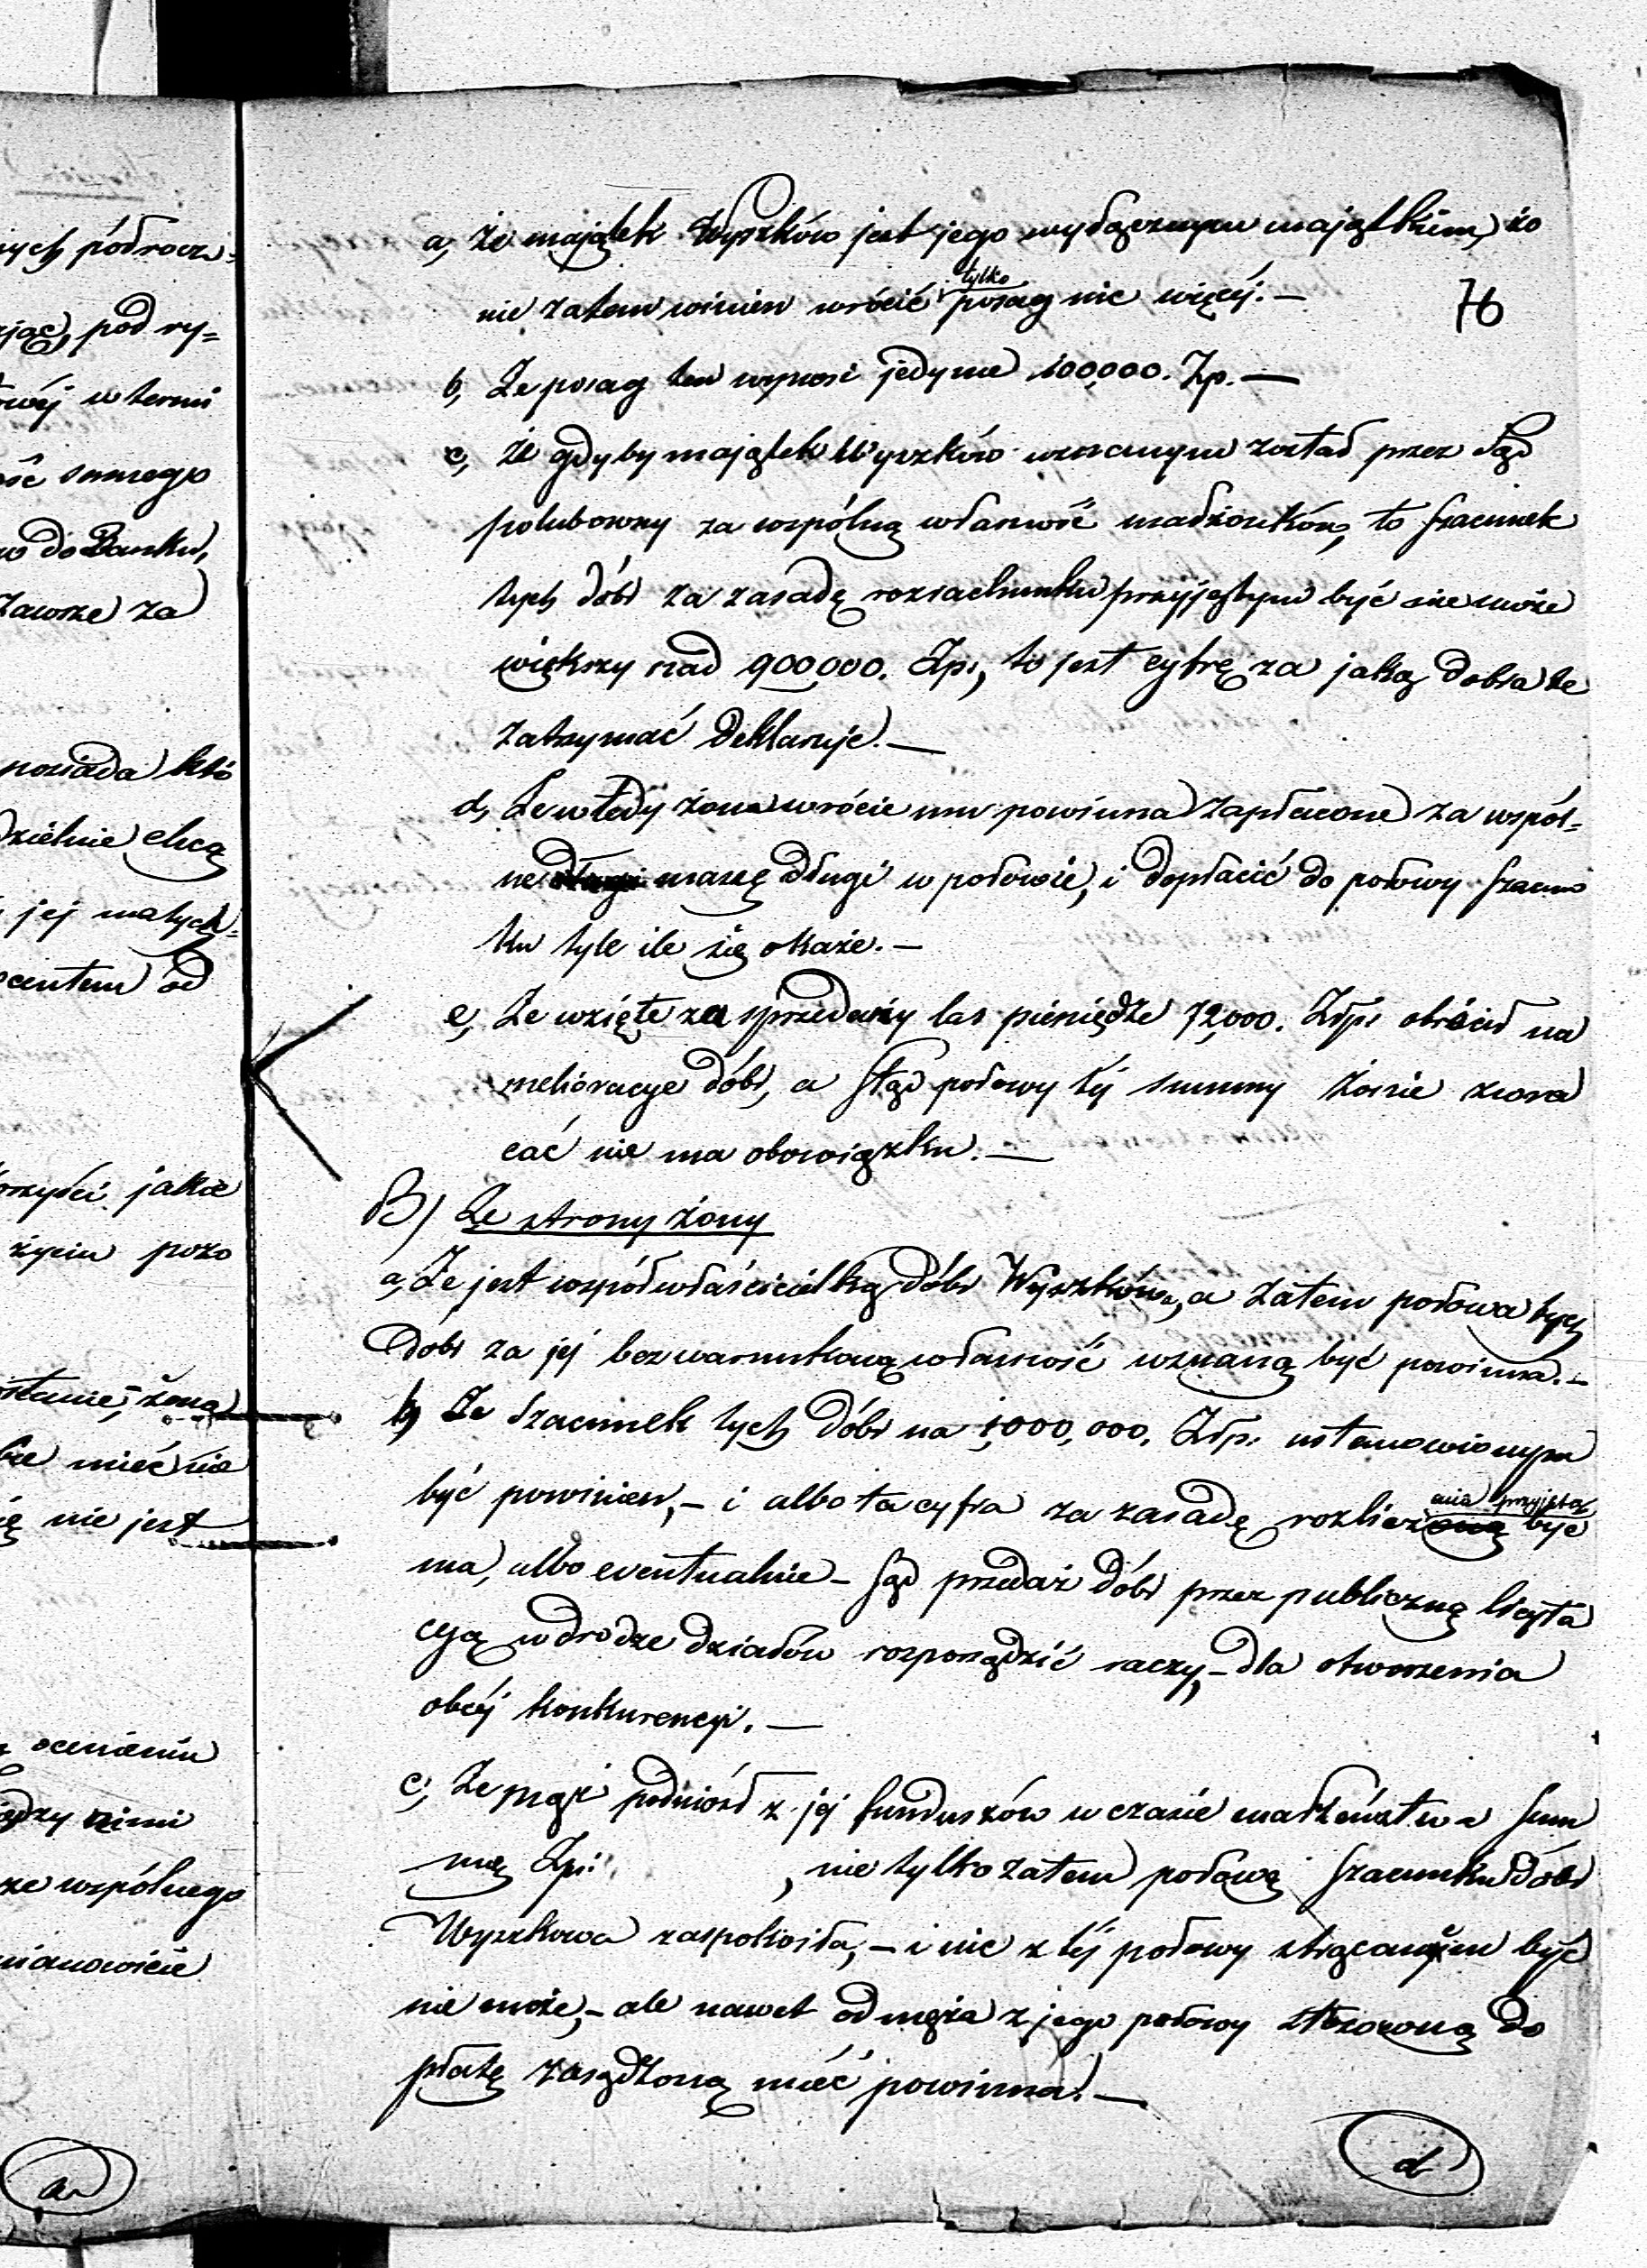 ych półrocz=
jąc, pod ry=
wéj w termi
ość samego
do Banku,
zawsze za
posiada któ
dzielnie chcą
jej matych=
centem od
orzyści jakie
życiu pozo
żoną
mieć nie
nie jest
ocenieniu
między nimi
ze wspólnego
mianowicie
a
76
a, że majątek Wyszków jest jego wyłącznym majątkiem, żo
nie zatem winien wrócić tylko posag nic więcéj. —
b, Że posag ten wynosi jedynie 100,000. Zp. —
c, że gdyby majątek Wyszków uznanym został przez Sąd
polubowny za wspólną własność małżonków, to szacunek
tych dóbr za zasadę rozrachunku przyjętym być nie może
większy nad 900,000. Zp:, to jest cyfrę za jaką dobra te
zatrzymać deklaruje. —
d, Że wtedy żona wrócić mu powinna zapłacone za wspól=
ne długi massę długi w połowie, i dopłacić do połowy szacun
ku tyle ile się okaże. —
e, Że wzięte za sprzedany las pieniądze 72,000. Złp: obrócił na
melioracye dóbr, a stąd połowy téj summy żonie zwra
cać nie ma obowiązku. —
B) Ze strony żony
a, Że jest współwłaścicielką dóbr Wyszkowa, a zatem połowa tych
dóbr za jéj bezwarunkową własność uznaną być powinna. —
b, Że szacunek tych dóbr na 1,000,000. Złp: ustanowionym
być powinien, – i albo ta cyfra za zasadę rozliczenia przyjętą być
ma, albo eventualnie – Sąd przedaż dóbr przez publiczną licyta
cyą w drodze działów rozporządzić raczy, – dla otworzenia
obcéj konkurencyi. —
c, Że mąż podniósł z jéj funduszów w czasie małżeństwa sum
mę Zp: , nie tylko zatem połowę szacunku dóbr
Wyszkowa zaspokoiła, – i nic z téj połowy strącanem być
nie może, – ale nawet od męża z jego połowy stosowną do
płatę zasądzoną mieć powinna. —
d